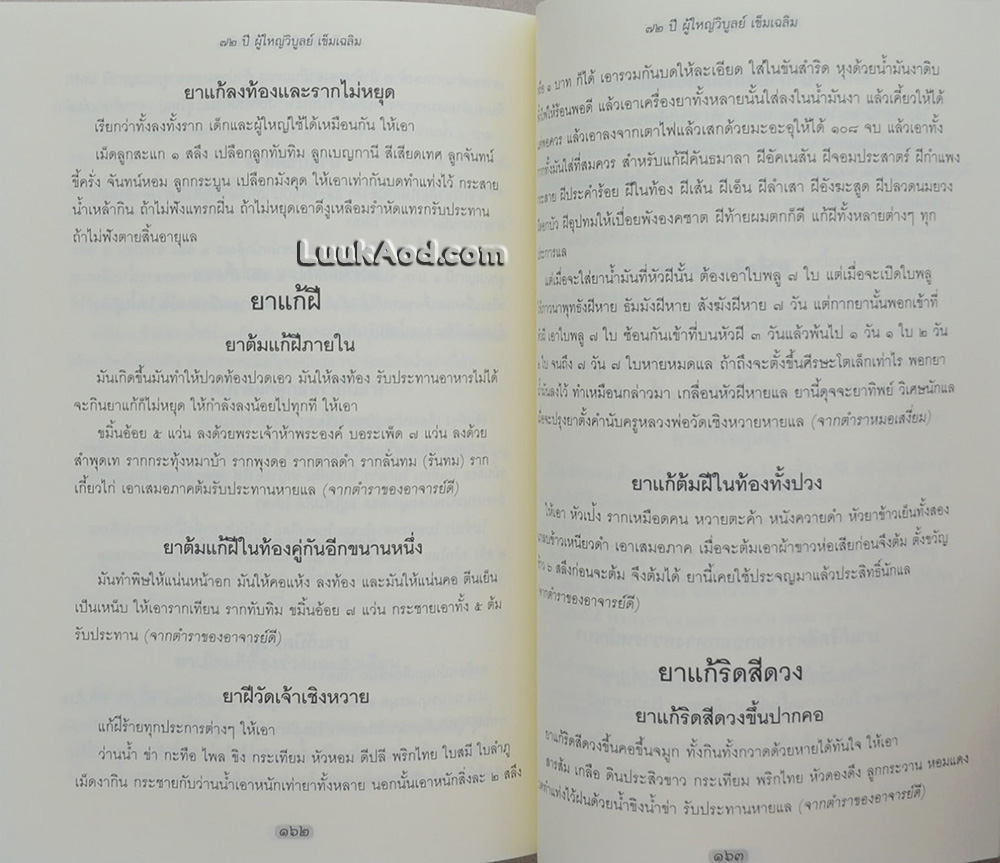 ๗๒ ปี ผู้ใหญ่วิบูลย์ เข็มเฉลิม
ยาแก้ลงท้องและรากไม่หยุด
เรียกว่าทั้งลงทั้งราก เด็กและผู้ใหญ่ใช้ได้เหมือนกัน ให้เอา
เม็ดลูกสะแก ๑ สลึง เปลือกลูกทับทิม ลูกเบญกานี สีเสียดเทศ ลูกจันทน์
ขี้ครั่ง จันทน์หอม ลูกกระบูน เปลือกมังคุด ให้เอาเท่ากันบดทำแท่งไว้ กระสาย
น้ำเหล้ากิน ถ้าไม่ฟังแทรกฝิ่น ถ้าไม่หยุดเอาดีงูเหลือมรำหัดแทรกรับประทาน
ถ้าไม่ฟังตายสิ้นอายุแล
LuukAod.com
ยาแก้ฝี
ยาต้มแก้ฝีภายใน
มันเกิดขึ้นมันทำให้ปวดท้องปวดเอว มันให้ลงท้อง รับประทานอาหารไม่ได้
จะกินยาแก้ก็ไม่หยุด ให้กำลังลงน้อยไปทุกที ให้เอา
ขมิ้นอ้อย ๕ แว่น ลงด้วยพระเจ้าห้าพระองค์ บอระเพ็ด ๗ แว่น ลงด้วย
สำพุดเท รากกระทุ้งหมาบ้า รากพุงดอ รากตาลดำ รากลั่นทม (รันทม) ราก
เกี้ยวไก่ เอาเสมอภาคต้มรับประทานหายแล (จากตำราของอาจารย์ดี)
ยาต้มแก้ฝีในท้องคู่กันอีกขนานหนึ่ง
มันทำพิษให้แน่นหน้าอก มันให้คอแห้ง ลงท้อง และมันให้แน่นคอ ตีนเย็น
เป็นเหน็บ ให้เอารากเทียน รากทับทิม ขมิ้นอ้อย ๗ แว่น กระชายเอาทั้ง ๕ ต้ม
รับประทาน (จากตำราของอาจารย์ดี)
ยาฝีวัดเจ้าเชิงหวาย
แก้ฝีร้ายทุกประการต่างๆ ให้เอา
ว่านน้ำ ข่า กะทือ ไพล ขิง กระเทียม หัวหอม ดีปลี พริกไทย ใบสมี ใบลำภู
เม็ดงากิน กระชายกับว่านน้ำเอาหนักเท่ายาทั้งหลาย นอกนั้นเอาหนักสิ่งละ ๒ สลึง
๑๖๒
๗๒ ปี ผู้ใหญ่วิบูลย์ เข็มเฉลิม
๑ บาท ก็ได้ เอารวมกันบดให้ละเอียด ใส่ในขันสำริด หุงด้วยน้ำมันงาดิบ
ให้ร้อนพอดี แล้วเอาเครื่องยาทั้งหลายนั้นใส่ลงในน้ำมันงา แล้วเคี้ยวให้ได้
แล้วเอาลงจากเตาไฟแล้วเสกด้วยมะอะอุให้ได้ ๑๐๘ จบ แล้วเอาทั้ง
ใส่ที่สมควร สำหรับแก้ฝีคันธมาลา ฝีอัคเนสัน ฝีจอมประสาตร์ ฝีกำแพง
ฝีประคำร้อย ฝีในท้อง ฝีเส้น ฝีเอ็น ฝีลำเสา ฝีอังฆะสูด ฝีปลวดนมยวง
ฝีอุปทมให้เปื่อยพังองคชาต ฝีท้ายผมตกก็ดี แก้ฝีทั้งหลายต่างๆ ทุก
ประการแล
แต่เมื่อจะใส่ยาน้ำมันที่หัวฝีนั้น ต้องเอาใบพลู ๗ ใบ แต่เมื่อจะเปิดใบพลู
พุทธังฝีหาย ธัมมังฝีหาย สังฆังฝีหาย ๗ วัน แต่กากยานั้นพอกเข้าที่
เอาใบพลู ๗ ใบ ซ้อนกันเข้าที่บนหัวฝี ๓ วันแล้วพ้นไป ๑ วัน ๑ ใบ ๒ วัน
ใบ จนถึง ๗ วัน ๗ ใบหายหมดแล ถ้าถึงจะตั้งขึ้นศีรษะโตเล็กเท่าไร พอกยา
ลงไว้ ทำเหมือนกล่าวมา เกลื่อนหัวฝีหายแล ยานี้ดุจจะยาทิพย์ วิเศษนักแล
จะปรุงยาตั้งคำนับครูหลวงพ่อวัดเชิงหวายหายแล (จากตำราหมอเสงี่ยม)
ยาแก้ต้มฝีในท้องทั้งปวง
ให้เอา หัวเป้ง รากเหมือดคน หวายตะค้า หนังควายดำ หัวยาข้าวเย็นทั้งสอง
ข้าวเหนียวดำ เอาเสมอภาค เมื่อจะต้มเอาผ้าขาวห่อเสียก่อนจึงต้ม ตั้งขวัญ
ข้าว ๖ สลึงก่อนจะต้ม จึงต้มได้ ยานี้เคยใช้ประจญมาแล้วประสิทธิ์นักแล
(จากตำราของอาจารย์ดี)
ยาแก้ริดสีดวง
ยาแก้ริดสีดวงขึ้นปากคอ
ยาแก้ริดสีดวงขึ้นคอขึ้นจมูก ทั้งกินทั้งกวาดด้วยหายได้ทันใจ ให้เอา
สารส้ม เกลือ ดินประสิวขาว กระเทียม พริกไทย หัวดองดึง ลูกกระวาน หอมแดง
ทำแท่งไว้ฝนด้วยน้ำขิงน้ำข่า รับประทานหายแล (จากตำราของอาจารย์ดี)
๑๖๓